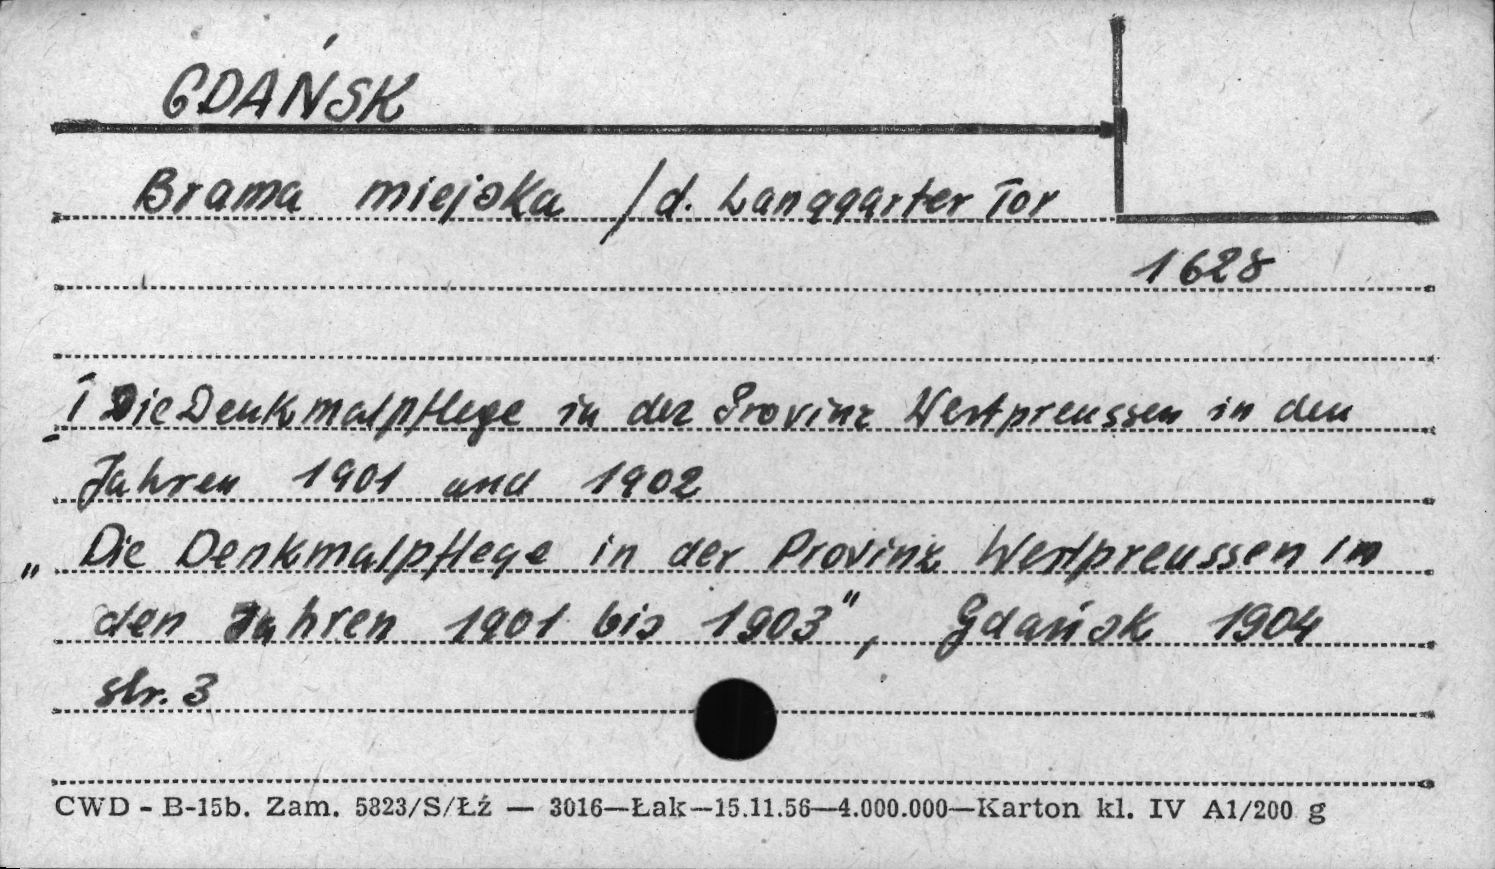 GDAŃSK
Brama miejska /d. Langgarter Tor
1628
I Die Denkmalpflege in der Provinz Westpreussen in den
Jahren 1901 und 1902
„Die Denkmalpflege in der Provinz Westpreussen in
den Jahren 1901 bis 1903", Gdańsk 1904
str. 3
CWD - B-15b. Zam. 5823/S/Łź — 3016—Łak—15.11.56—4.000.000—Karton kl. IV A1/200 g